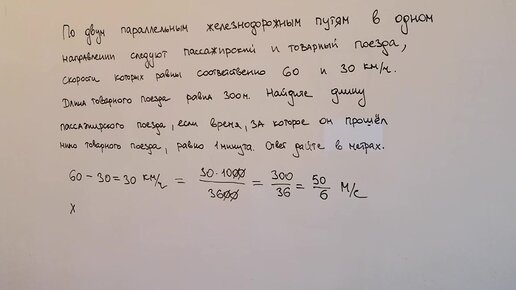 По двум параллельным железнодорожным путям в одном
направлении следуют пассажирский и товарный поезда,
скорости которых равны соответственно 60 и 30 км/ч.
Длина товарного поезда равна 300м. Найдите длину
пассажирского поезда, если время, за которое он прошёл
мимо товарного поезда, равно 1 минута. Ответ дайте в метрах.
60 - 30 = 30 км/ч = 30·1000/3600 = 300/36 = 50/6 м/с
X